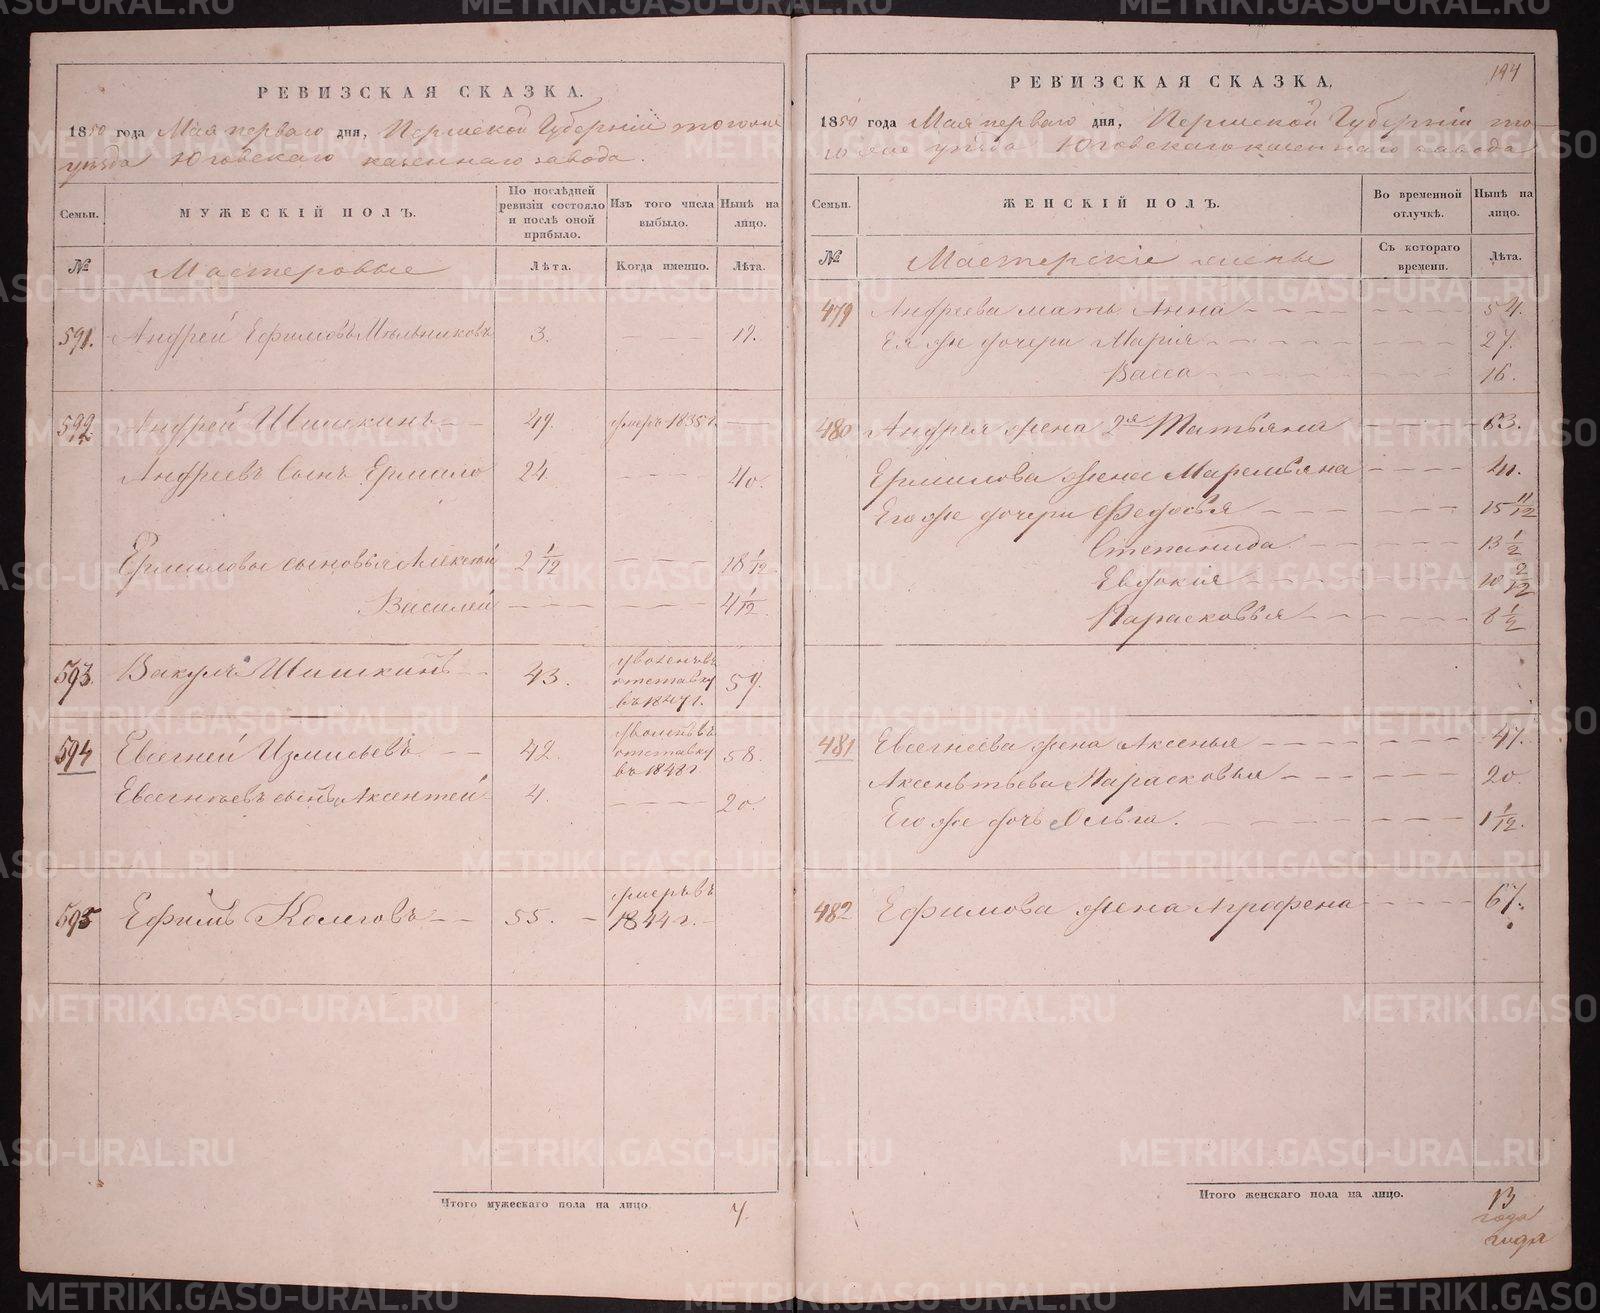 РЕВИЗСКАЯ СКАЗКА.
1850 года Мая перваго дня, Пермской Губерніи тогоже
уезда Юговскаго казеннаго завода.
Семьи.
МУЖЕСКІЙ ПОЛЪ.
По послѣдней ревизіи состояло и послѣ оной прибыло.
Изъ того числа выбыло.
Нынѣ на лицо.
№
Мастеровые
Лѣта.
Когда именно.
Лѣта.
591. Андрей Ефимовъ Мельниковъ 3. 19.
592 Андрей Шишкинъ 49. умеръ 1835 г.
Андреевъ сынъ Ермило 24. 40.
Ермиловы сыновья Алексей 2 1/12 18 1/12.
Василей 4 1/12.
593. Вакулъ Шишкинъ 43. уволенъ въ отставку въ 1847 г. 59.
594 Евсегней Измисьевъ 42. уволенъ въ отставку въ 1848 г 58.
Евсегнеевъ сынъ Аксентей 4. 20.
595 Ефимъ Колеговъ 55. умеръ въ 1844 г.
Итого мужескаго пола на лицо 7.
194
РЕВИЗСКАЯ СКАЗКА.
1850 года Мая перваго дня, Пермской Губерніи то-
го же уезда Юговскаго казеннаго завода
Семьи.
ЖЕНСКІЙ ПОЛЪ.
Во временной отлучкѣ.
Нынѣ на лицо.
№
Мастерскіе жены
Съ котораго времени.
Лѣта.
479 Андреева мать Анна 54.
Ея же дочери Марія 27.
Васса 16.
480 Андрея жена 2я Татьяна 63.
Ермилова жена Маремьяна 41.
Его же дочери Федосья 15 11/12
Степанида 13 1/2
Евдокія 10 2/12
Парасковья 8 1/2
481 Евсегнеева жена Аксенья 47.
Аксентьева Парасковья 20.
Его же дочь Ольга. 1 1/12.
482 Ефимова жена Агрофена 67.
Итого женскаго пола на лицо. 13
года
года
METRIKI.GASO-URAL.RU